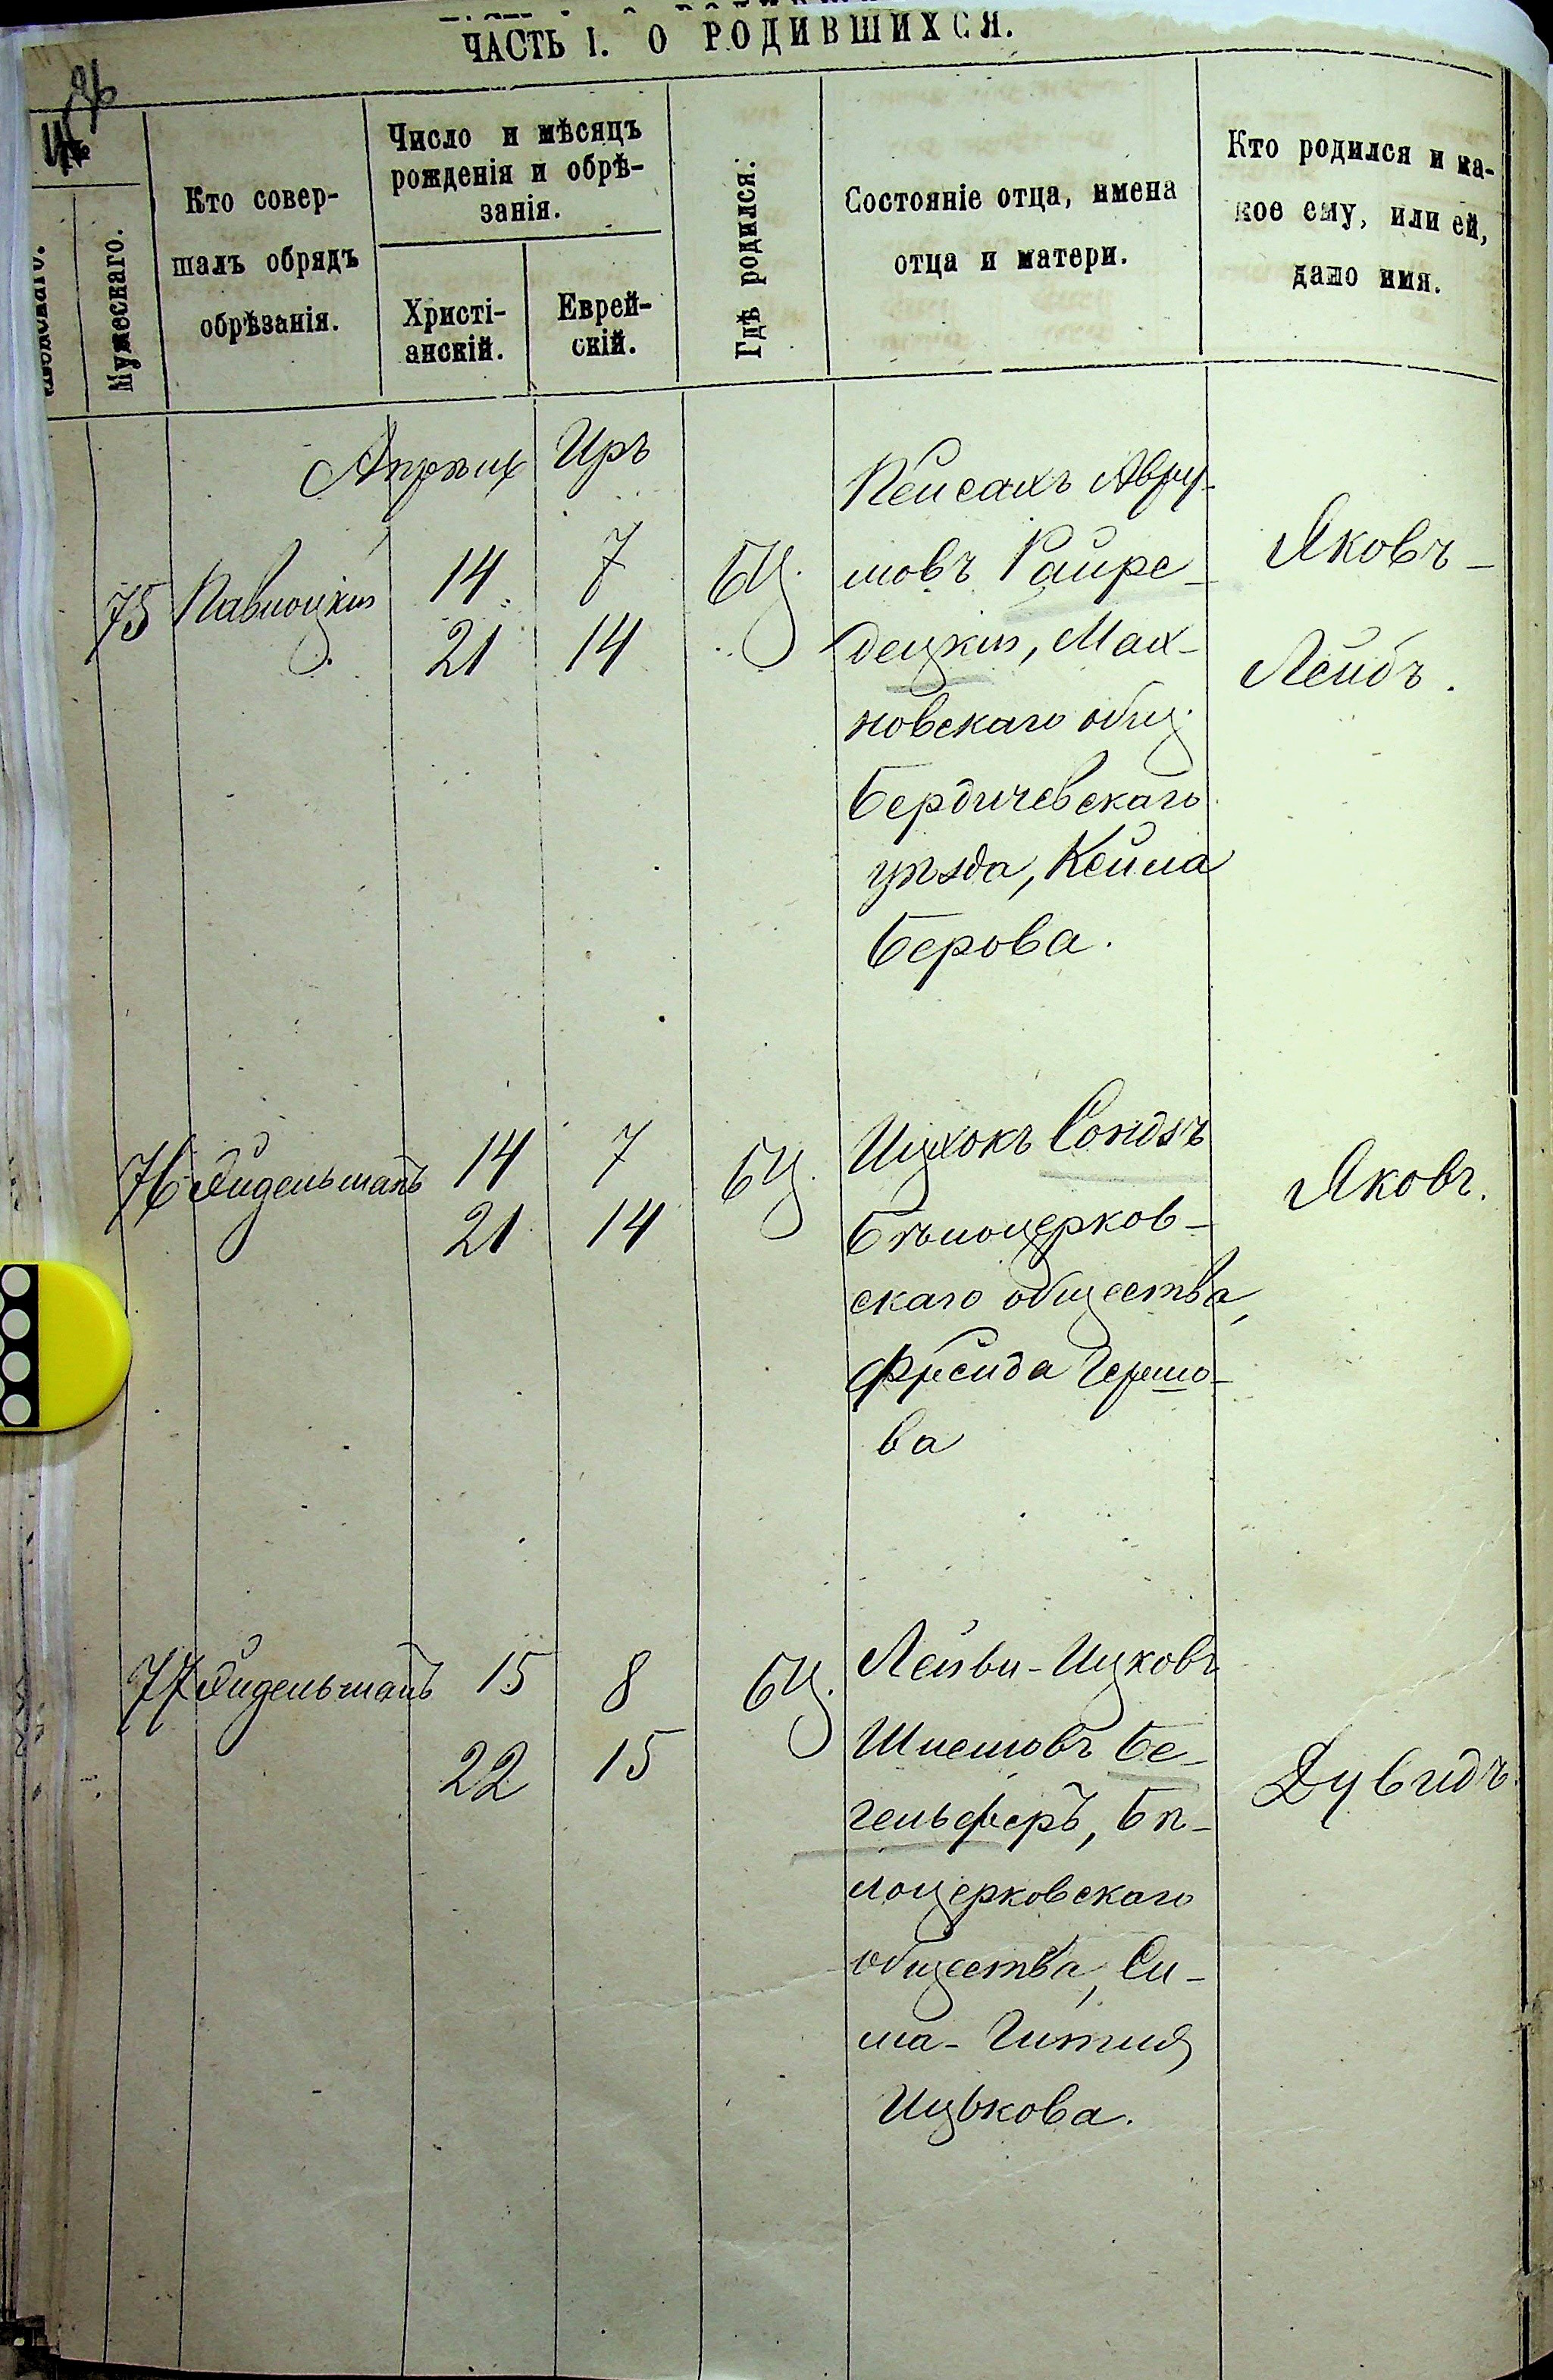 ЧАСТЬ I. О РОДИВШИХСЯ.
Мужескаго.
Кто совер-
шалъ обрядъ
обрѣзанія.
Число и мѣсяцъ
рожденія и обрѣ-
занія.
Христі-
анскій.
Еврей-
скій.
Гдѣ родился.
Состояніе отца, имена
отца и матери.
Кто родился и ка-
кое ему, или ей,
дано имя.
Апрѣль Иръ
75 Павлоцкій 14 7 БЦ.
21 14
Пейсахъ Авру-
мовъ Гайре-
децкій, Мах-
новскаго общ.
Бердичевскаго
уѣзда, Кейла
Берова.
Яковъ-
Лейбъ.
76 14 7 БЦ.
21 14
Ицхокъ Сондзъ
Бѣлоцерков-
скаго общества,
Фрейда Гершо-
ва
Яковъ.
77 15 8 БЦ.
22 15
Лейви-Ицковъ
Шлемовъ Бе-
гельферъ, Бѣ-
лоцерковскаго
общества, Си-
ма-Гитля
Ицькова.
Дувидъ.